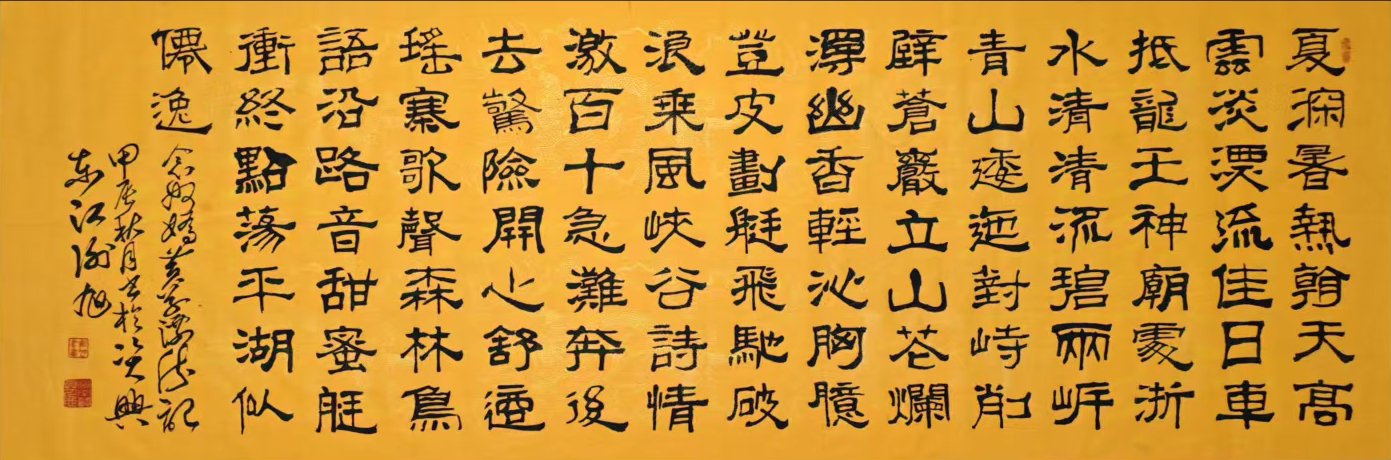 夏深暑熱翰天高
雲淡漂流佳日車
抵龍王神廟處浙
水清清流碧兩岸
青山逶迤對峙削
壁蒼巖立山花爛
潭幽香輕沁胸臆
豈皮劃艇飛馳破
浪乘風峽谷詩情
激百十急灘奔後
去驚險開心舒
瑤寨歌聲森林鳥
語沿路音甜蜜艇
衝終點蕩平湖似
僊逸
念奴嬌黃草漂流記
甲辰秋月書於資興
东江谢旭